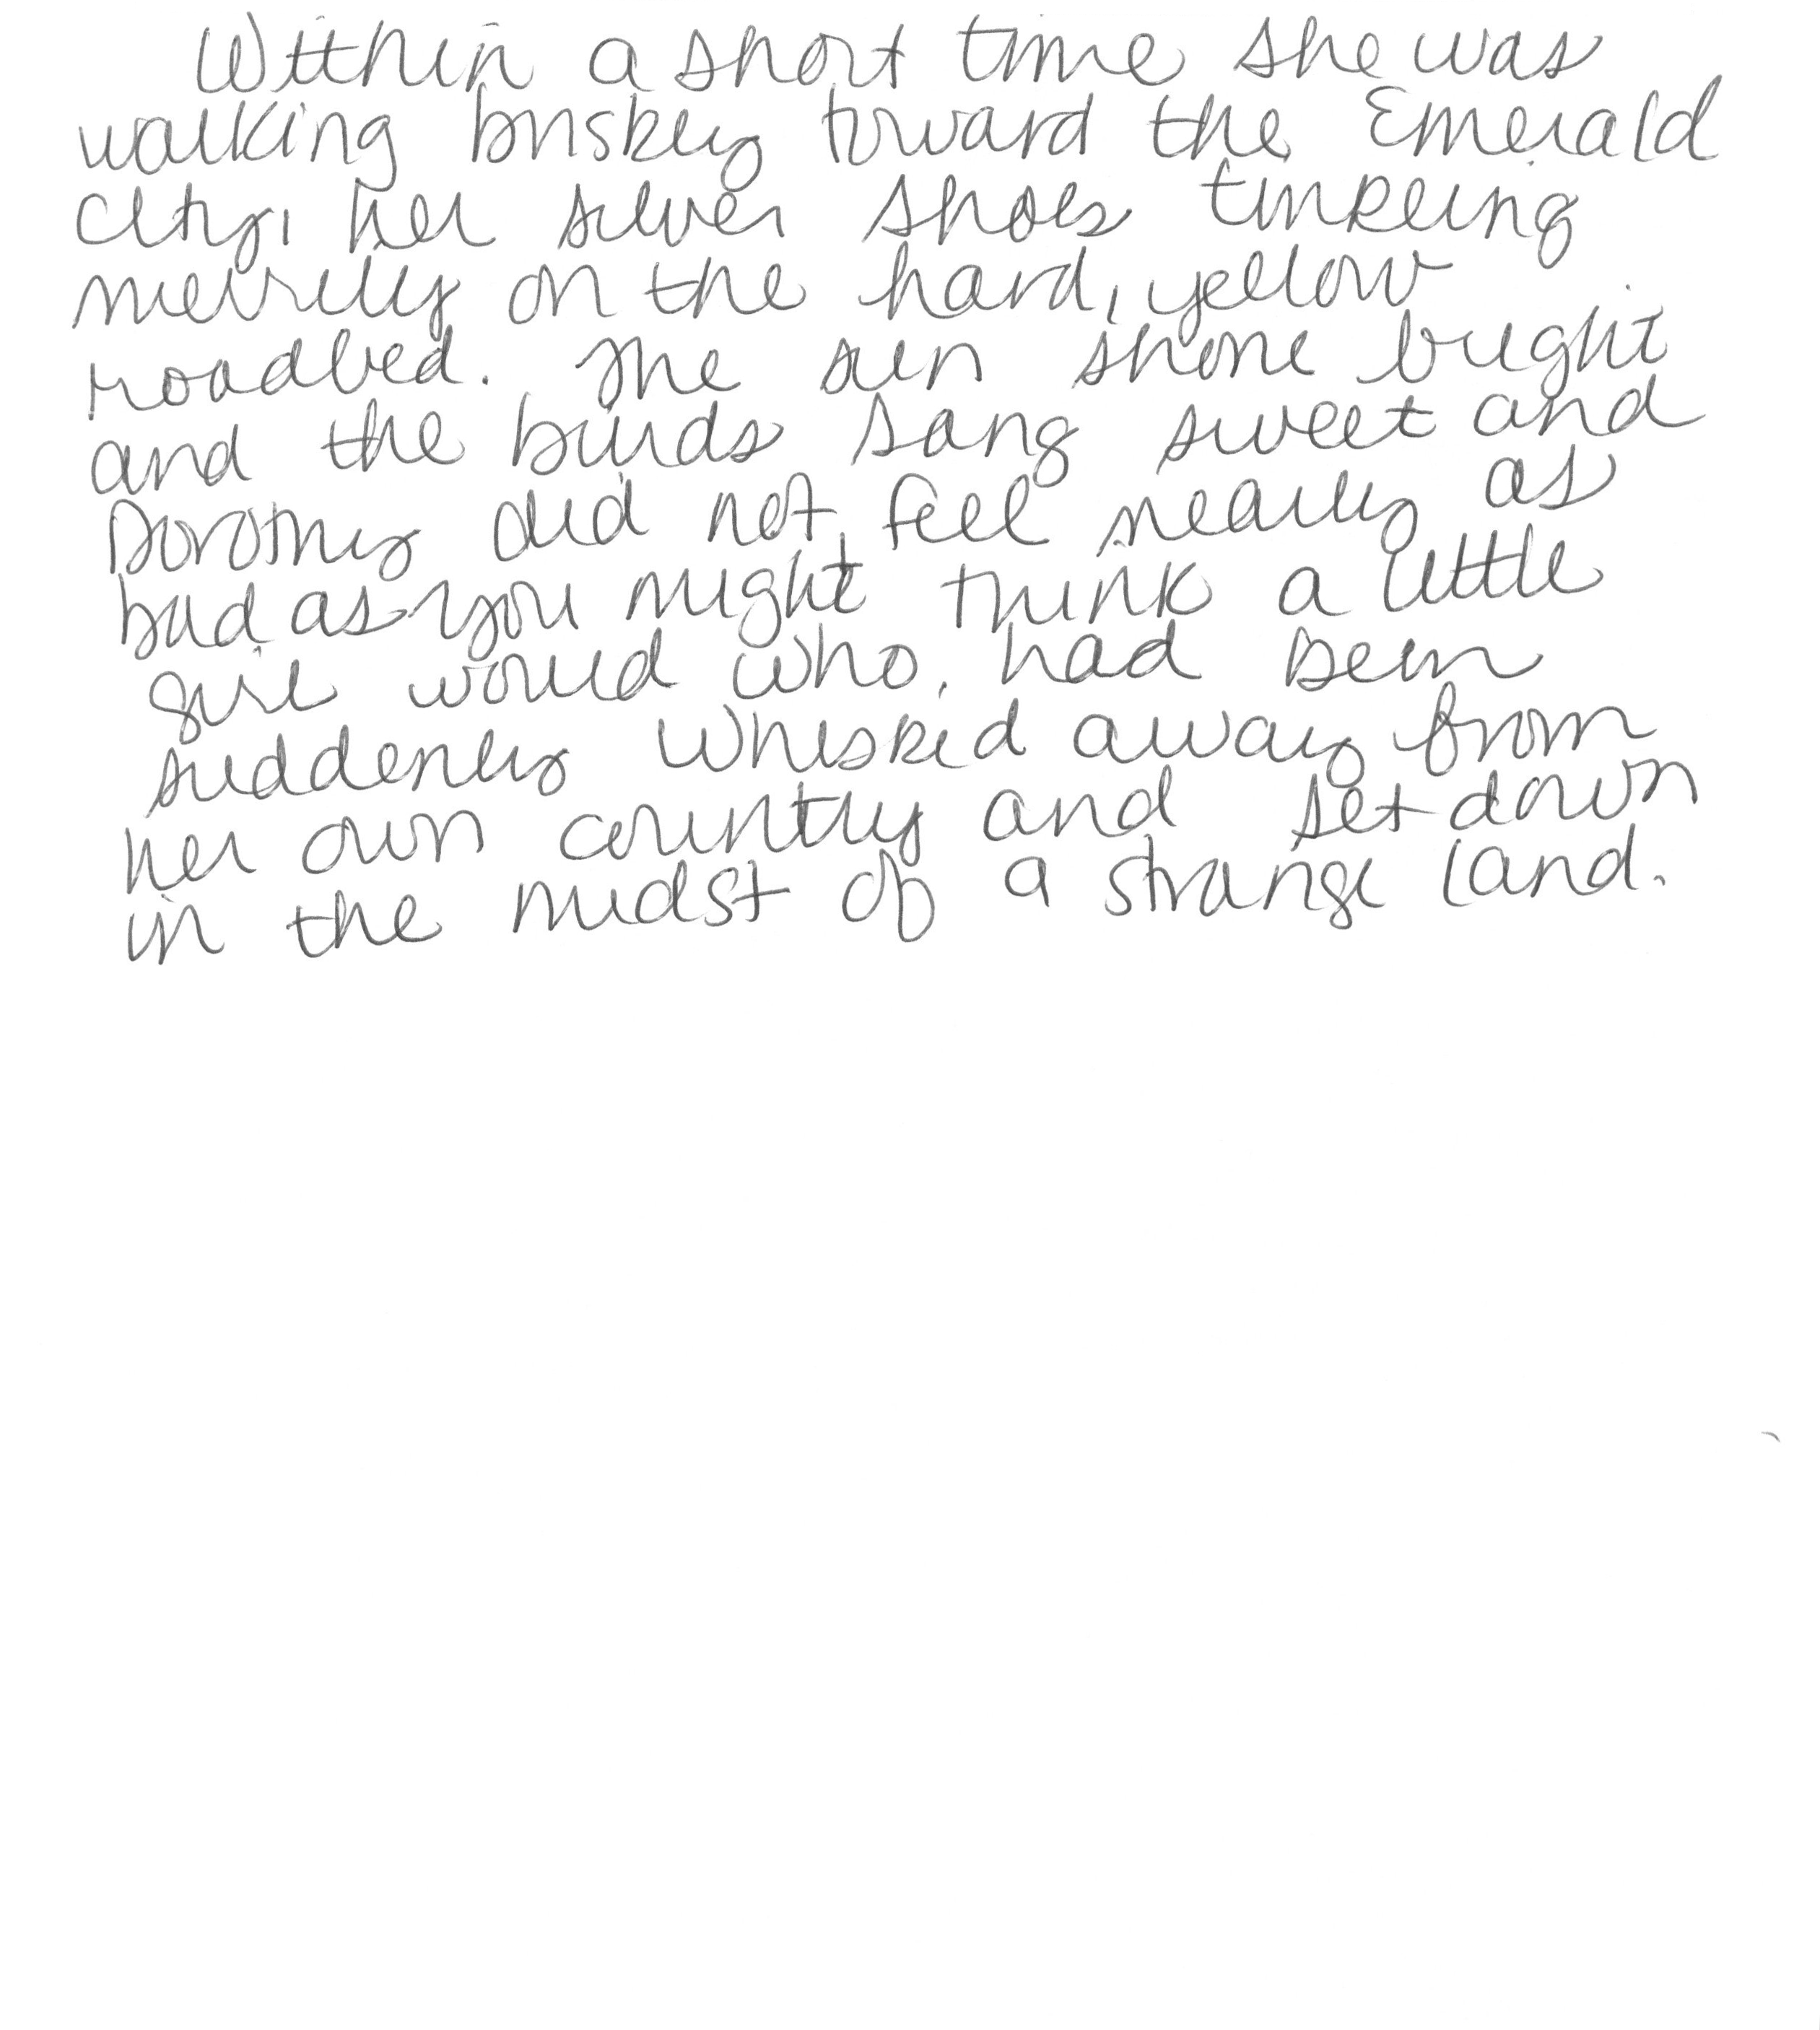 Within a short time she was
walking briskly toward the Emerald
City, her silver shoes tinkling
merrily on the hard, yellow
roadbed. The sun shone bright
and the birds sang sweet and
Dorothy did not feel nearly as
bad as you might think a little
girl would who had been
suddenly whisked away from
her own country and set down
in the midst of a strange land.